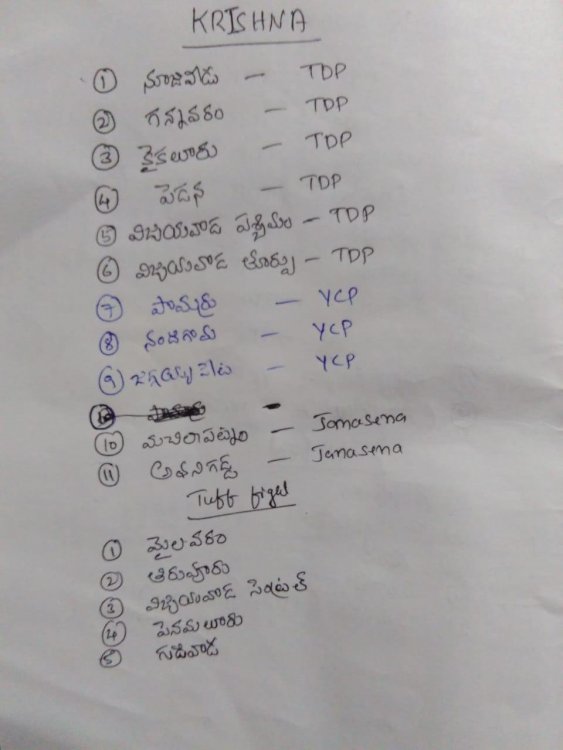 KRISHNA
① నూజివీడు — TDP
② గన్నవరం — TDP
③ కైకలూరు — TDP
④ పెడన — TDP
⑤ విజయవాడ పశ్చిమం — TDP
⑥ విజయవాడ తూర్పు — TDP
⑦ పామర్రు — YCP
⑧ నందిగామ — YCP
⑨ జగ్గయ్యపేట — YCP
⑩ మచిలీపట్నం — Janasena
⑪ అవనిగడ్డ — Janasena
Tuff
① మైలవరం
② తిరువూరు
③ విజయవాడ సెంట్రల్
④ పెనమలూరు
⑤ గుడివాడ